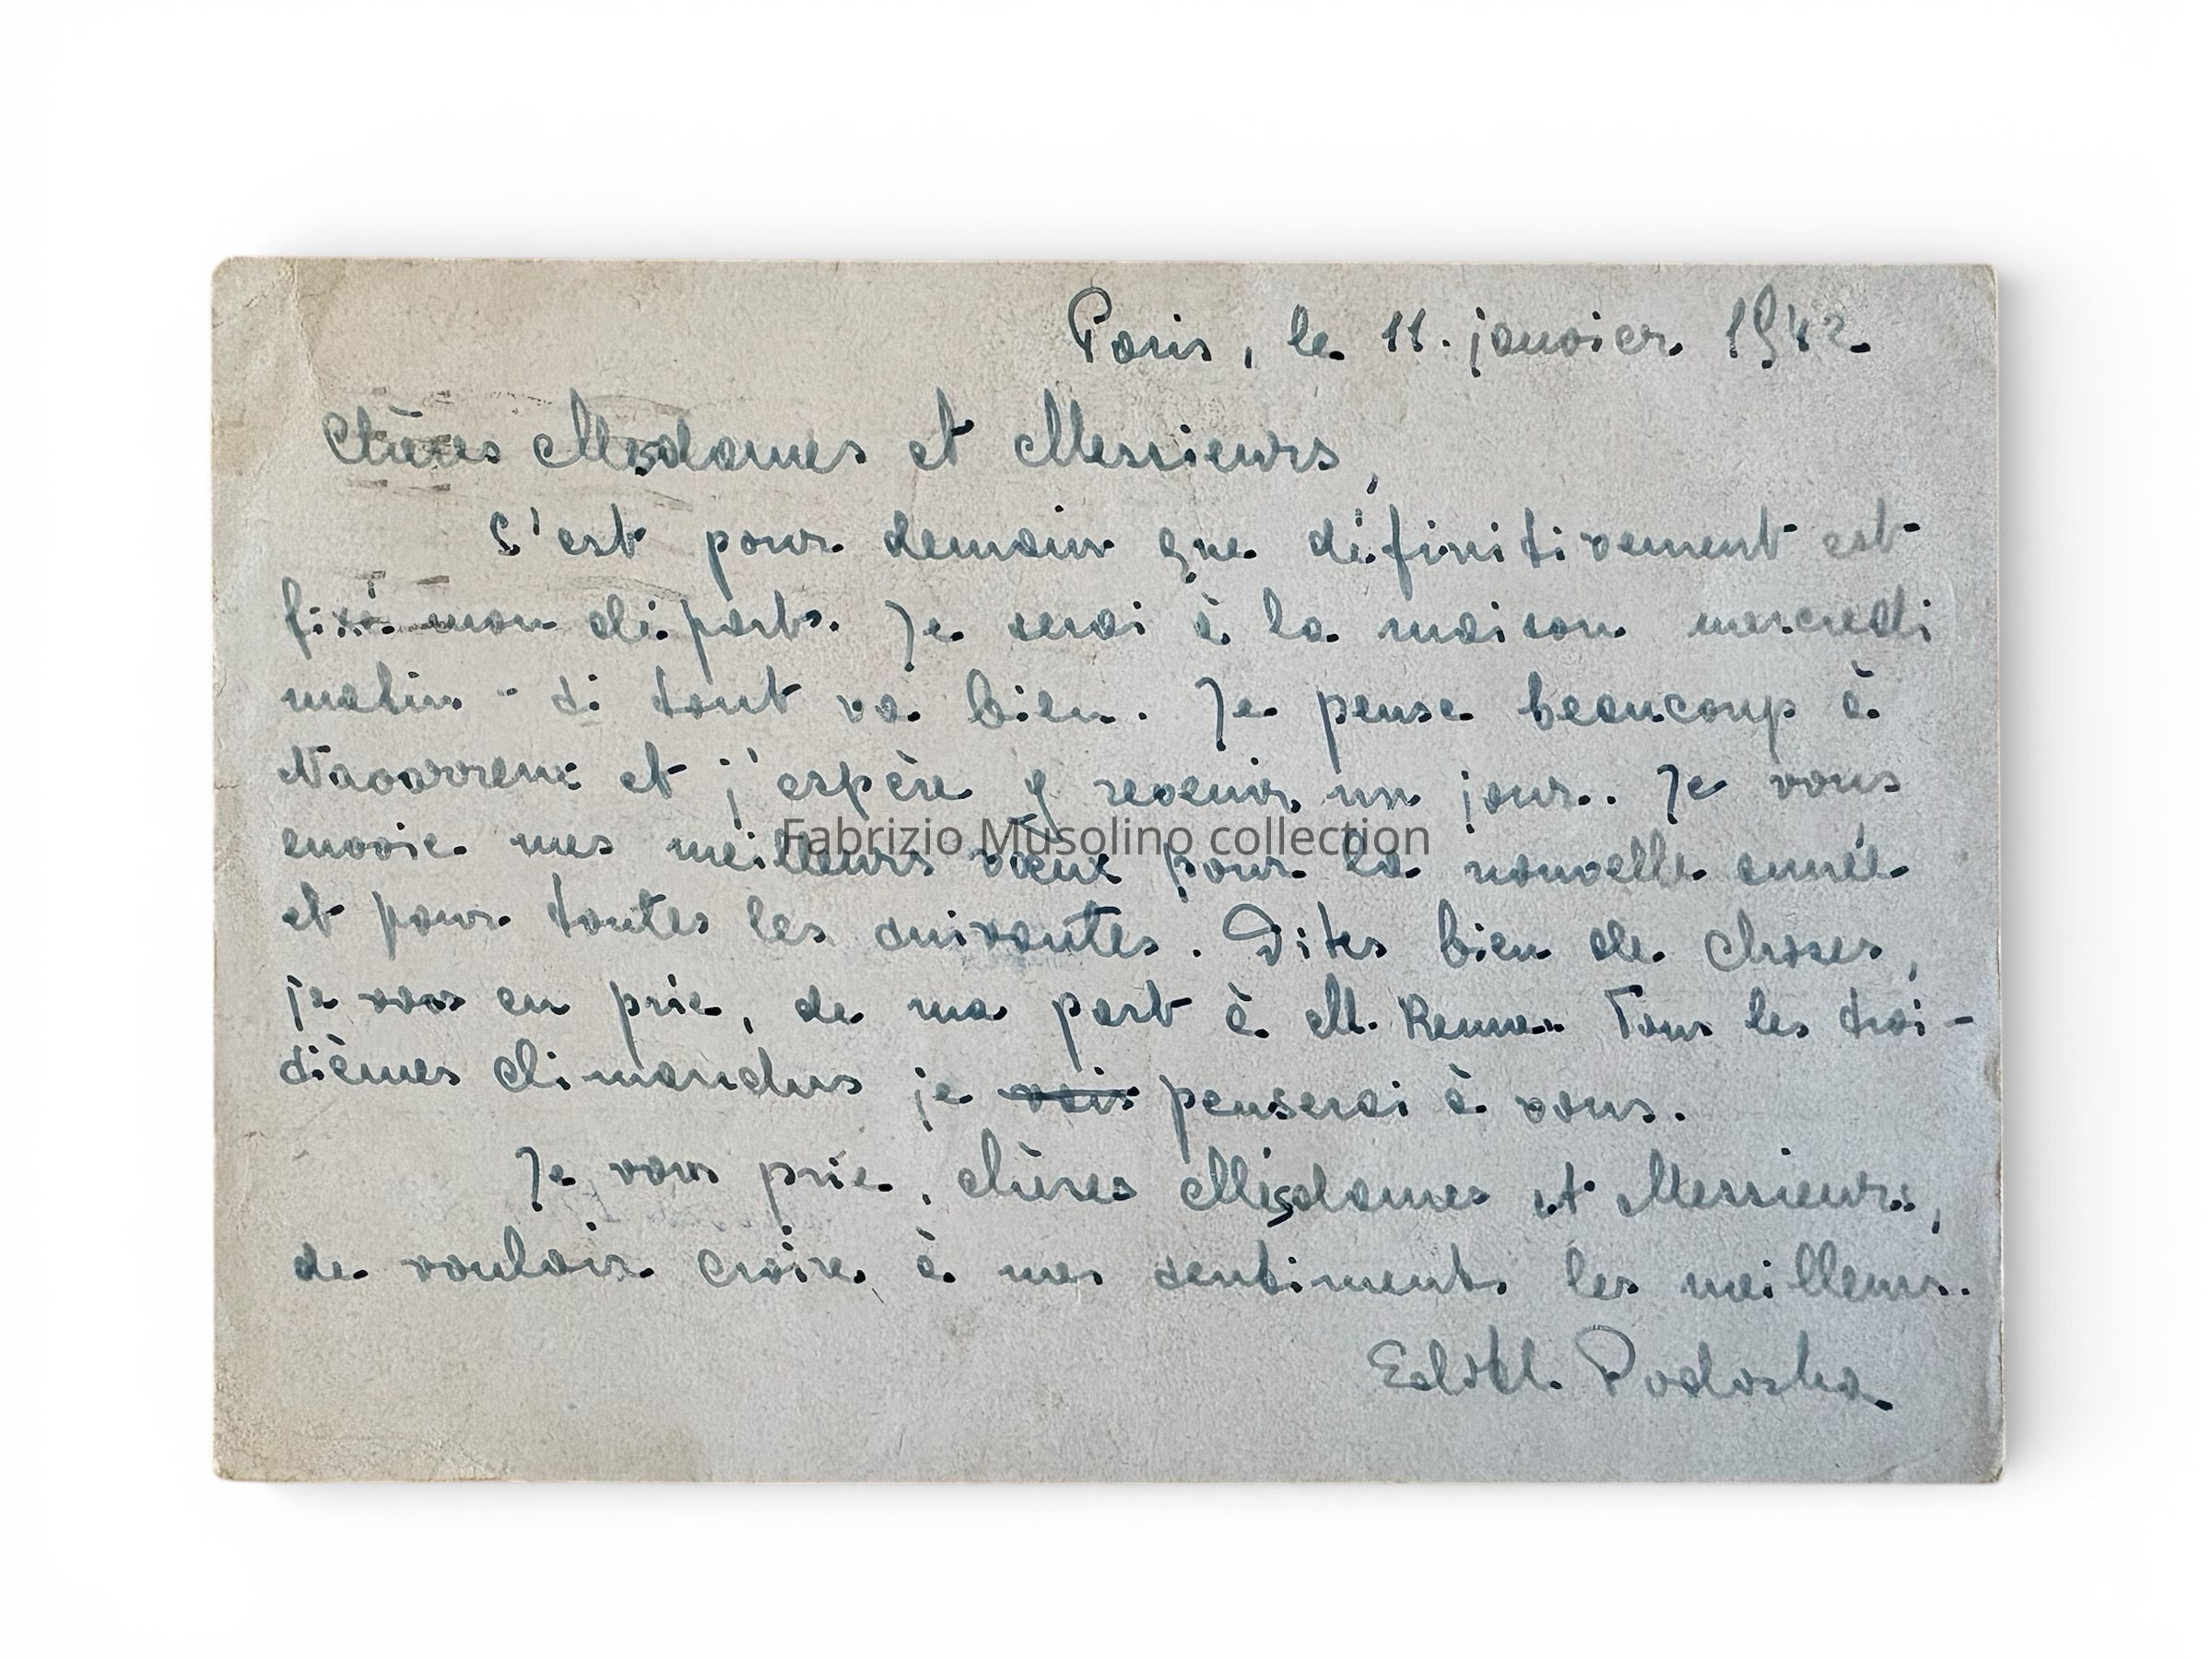 Paris, le 11. janvier 1942.
Chères Mesdames et Messieurs,
C'est pour demain que définitivement est
fixé mon départ. Je serai à la maison mercredi
matin - si tout va bien. Je pense beaucoup à
Navarrenx et j'espère y revenir un jour. Je vous
envoie mes meilleurs vœux pour la nouvelle année
Fabrizio Musolino collection
et pour toutes les suivantes. Dites bien de choses,
je vous en prie, de ma part à M. Tous les troi-
sièmes dimanches je penserai à vous.
Je vous prie, chères Mesdames et Messieurs,
de vouloir croire à mes sentiments les meilleurs.
Edith Podoska